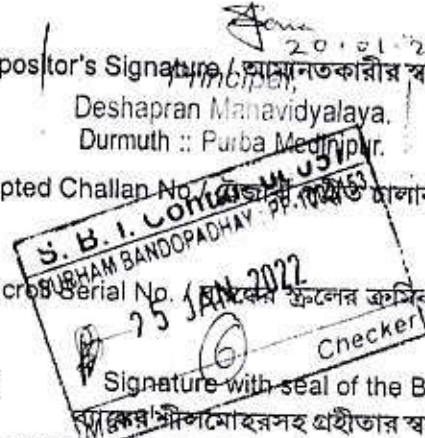 20.01.2
positor's Signature / আমানতকারীর স্ব
Principal,
Deshapran Mahavidyalaya.
Durmuth :: Purba Medinipur.
pted Challan No. / চালান
S. B. I.
SUBHAM BANDOPADHAY : PF.
Serial No. / স্ক্রলের ক্রমিক
25 JAN 2022
6
Checker
Signature with seal of the B
ব্যাঙ্কের শীলমোহরসহ গ্রহীতার স্ব